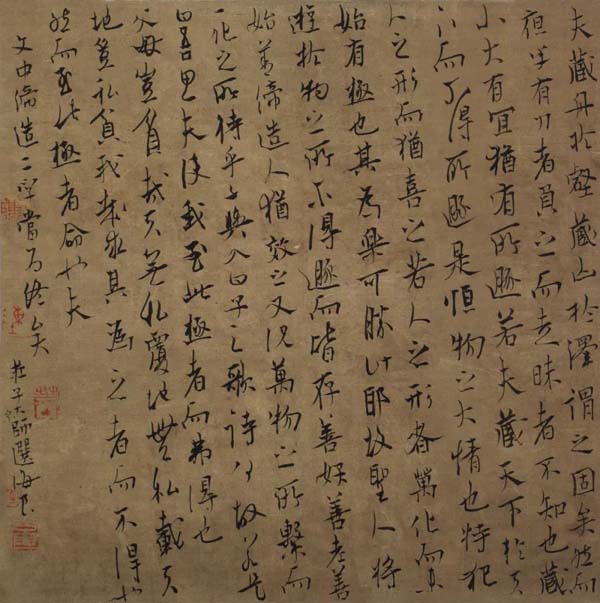 夫藏舟於壑藏山於澤謂之固矣然而
夜半有力者負之而走昧者不知也藏
小大有宜猶有所遯若夫藏天下於天
下而不得所遯是恒物之大情也特犯
人之形而猶喜之若人之形者萬化而未
始有極也其為樂可勝計耶故聖人將
遊於物之所不得遯而皆存善妖善老善
始善締造人猶效之又況萬物之所繫而
一化之所待乎子輿入曰子之歌詩何故若是
曰吾思夫使我至此極者而弗得也
父母豈貧哉天無私覆地無私載天
地豈私貧我哉求其為之者而不得也
然而至此極者命也夫
文中締造二字當為終矣
莊子師選海